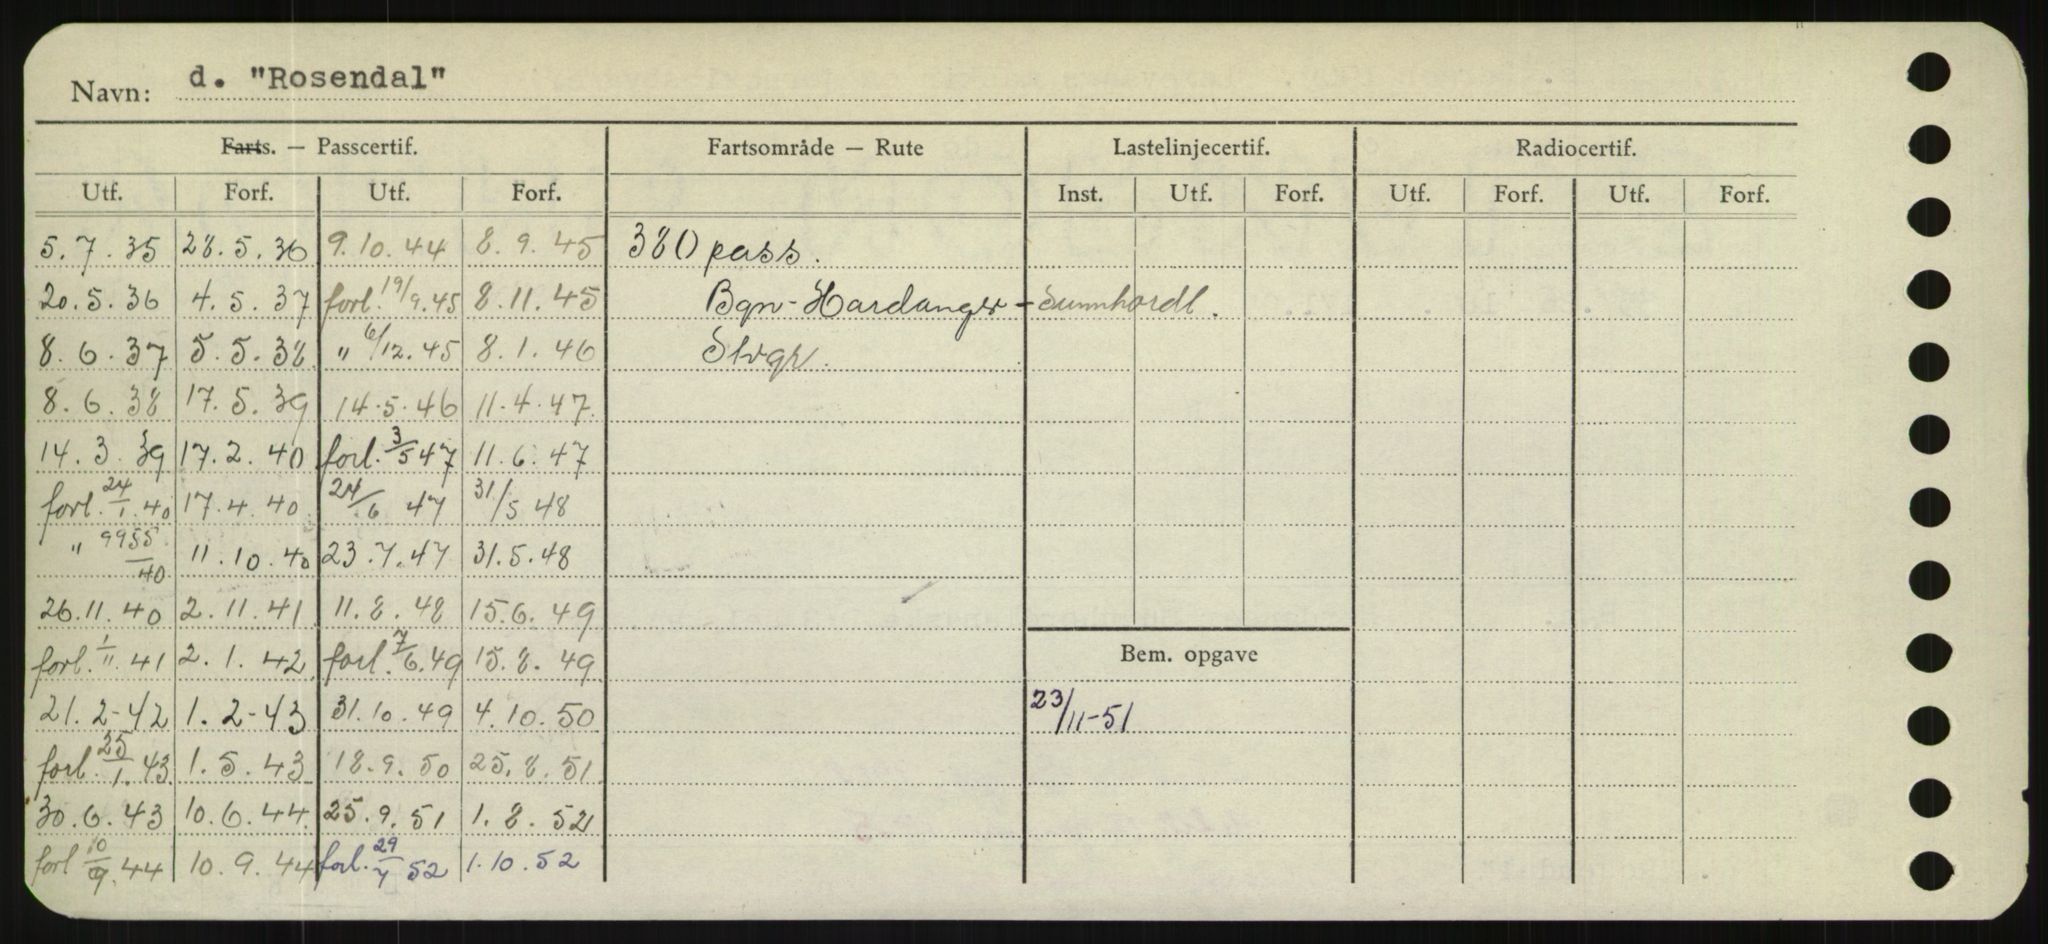 Navn: d. "Rosendal"
Farts. — Passcertif. Fartsområde — Rute Lastelinjecertif. Radiocertif.
Utf. Forf. Utf. Forf. Inst. Utf. Forf. Utf. Forf. Utf. Forf.
5.7.35 28.5.36 9.10.44 8.9.45 380 pass.
20.5.36 4.5.37 forl. 19/9.45 8.11.45 Bgn-Hardanger-Sunnhordl.
8.6.37 5.5.38 " 6/12.45 8.1.46 Stvgr.
8.6.38 17.5.39 14.5.46 11.4.47
14.3.39 17.2.40 forl. 3/5 47 11.6.47
forl. 24/1.40 17.4.40 24/6 47 31/5 48
" 9955/40 11.10.40 23.7.47 31.5.48
26.11.40 2.11.41 11.8.48 15.6.49
forl. 1/11.41 2.1.42 forl. 7/6.49 15.8.49
Bem. opgave
21.2-42 1.2-43 31.10.49 4.10.50 23/11-51
forl. 25/1.43 1.5.43 18.9.50 25.8.51
30.6.43 10.6.44 25.9.51 1.8.52
forl 44 10.9.44 forl. 29/7 52 1.10.52